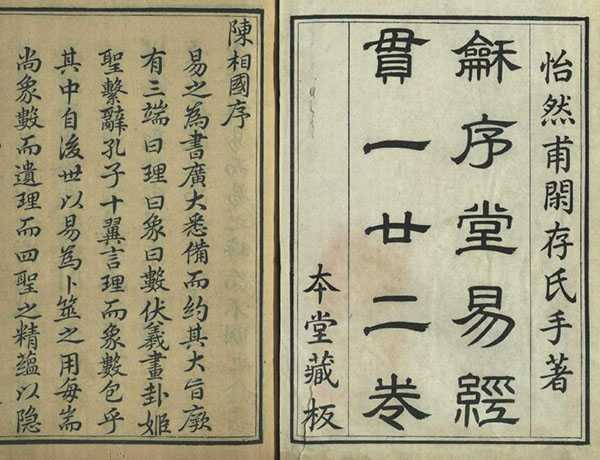 怡然甫閑存氏手著
龢序堂易經
貫一廿二卷
本堂藏板
陳相國序
易之為書廣大悉備而約其大旨厥
有三端曰理曰象曰數伏羲畫卦姬
聖繫辭孔子十翼言理而象數包乎
其中自後世以易為卜筮之用每耑
尚象數而遺理而四聖之精蘊以隐